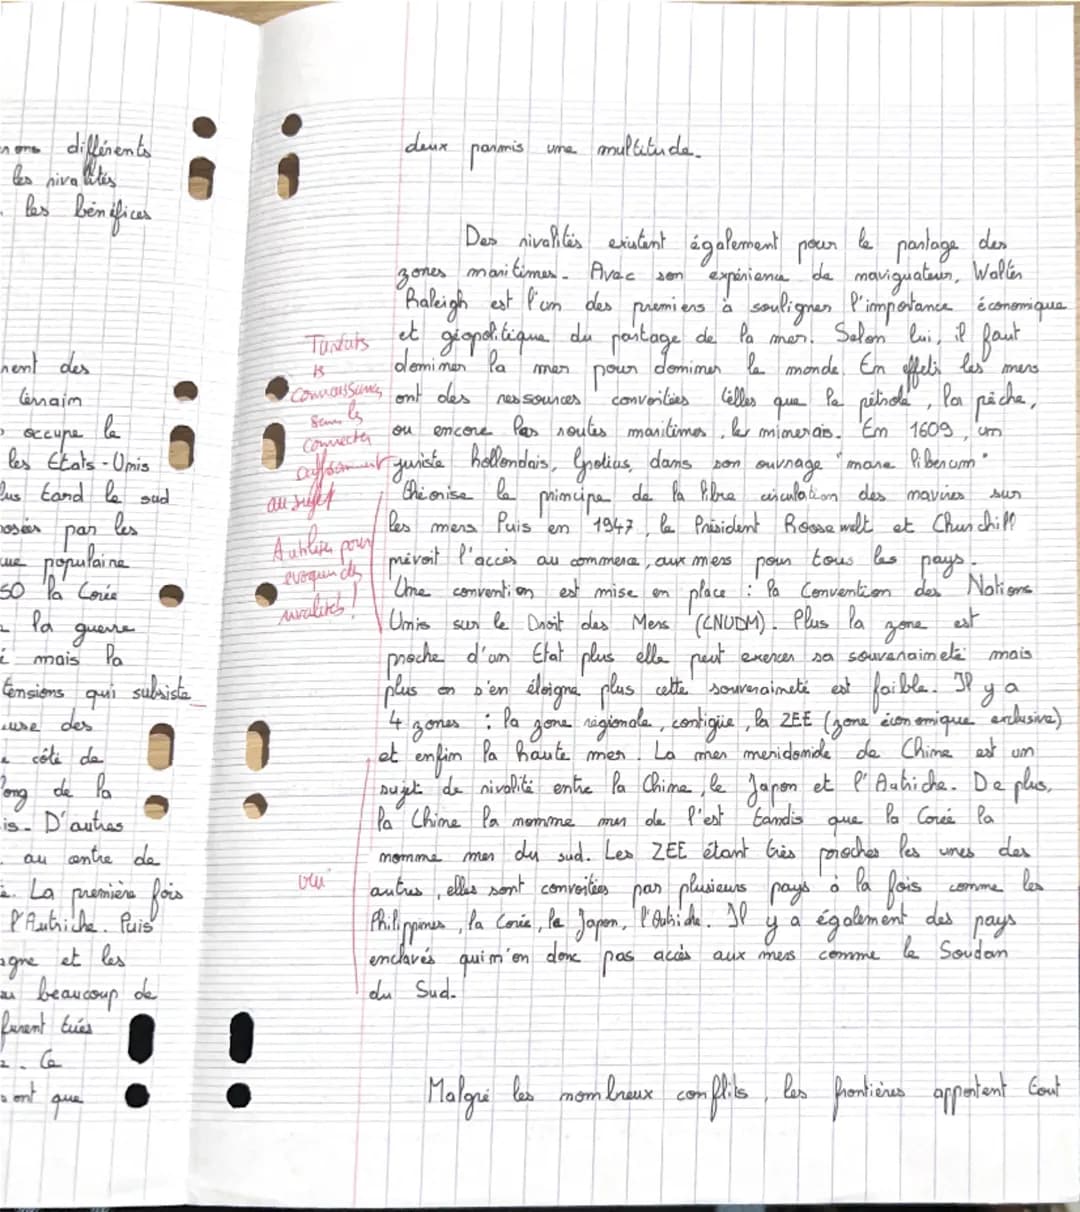 différents
les rivalités
les bénéfices
ment des
terrain
occupe le
les Etats-Unis
plus tard le sud
posées par les
que populaine
50 la Corée
la guerre
mais la
tensions qui subsiste
cause des
côté de
long de la
is. D'autres
au centre de
. La première fois
l'Autriche. Puis
agne et les
beaucoup de
furent tués
. Ce
sont que
deux parmis une multitude.
Des rivalités existent également pour le partage des
zones maritimes. Avec son expérience de naviguateur, Walter
Raleigh est l'un des premiers à souligner l'importance économique
et géopolitique du partage de la mer. Selon lui, il faut
dominer la mer pour dominer le monde. En effet, les mers
ont des ressources convoitées telles que le pétrole, la pêche,
ou encore les routes maritimes, les minerais. En 1609, un
juriste hollondais, Grotius, dans son ouvrage "mare liberum"
théorise le principe de la libre circulation des navires sur
les mers. Puis en 1947, le Président Roosewelt et Churchill
prévoit l'accès au commerce, aux mers pour tous les pays.
Une convention est mise en place : la Convention des Nations
Unies sur le Droit des Mers (CNUDM). Plus la zone est
proche d'un Etat plus elle peut exercer sa souveraineté mais
plus on s'en éloigne plus cette souveraineté est faible. Il y a
4 zones : la zone régionale, contigüe, la ZEE (zone économique exclusive)
et enfin la haute mer. La mer meridionale de Chine est un
sujet de rivalité entre la Chine, le Japon et l'Autriche. De plus,
la Chine la nomme mer de l'est tandis que la Corée la
nomme mer du sud. Les ZEE étant très proches les unes des
autres, elles sont convoitées par plusieurs pays à la fois comme les
Philippines, la Corée, le Japon, l'Autriche. Il y a également des pays
enclavés qui n'on donc pas accès aux mers comme le Soudan
du Sud.
Malgré les nombreux conflits, les frontières apportent tout
connaissances
sans les
connecter
suffisamment
au sujet
A utiliser pour
évoquer des
rivalités !
oui